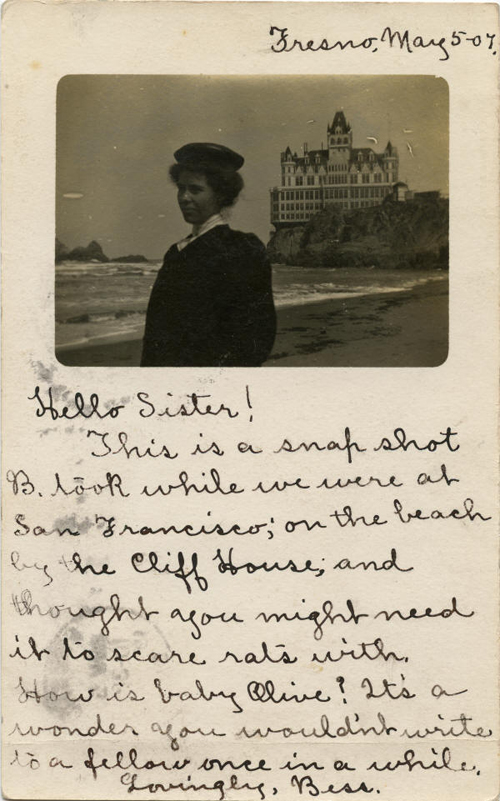 Fresno, May 5-07.
Hello Sister!
This is a snap shot
B. took while we were at
San Francisco; on the beach
by the Cliff House; and
thought you might need
it to scare rats with.
How is baby Olive? It's a
wonder you wouldn't write
to a fellow once in a while.
Lovingly, Bess.